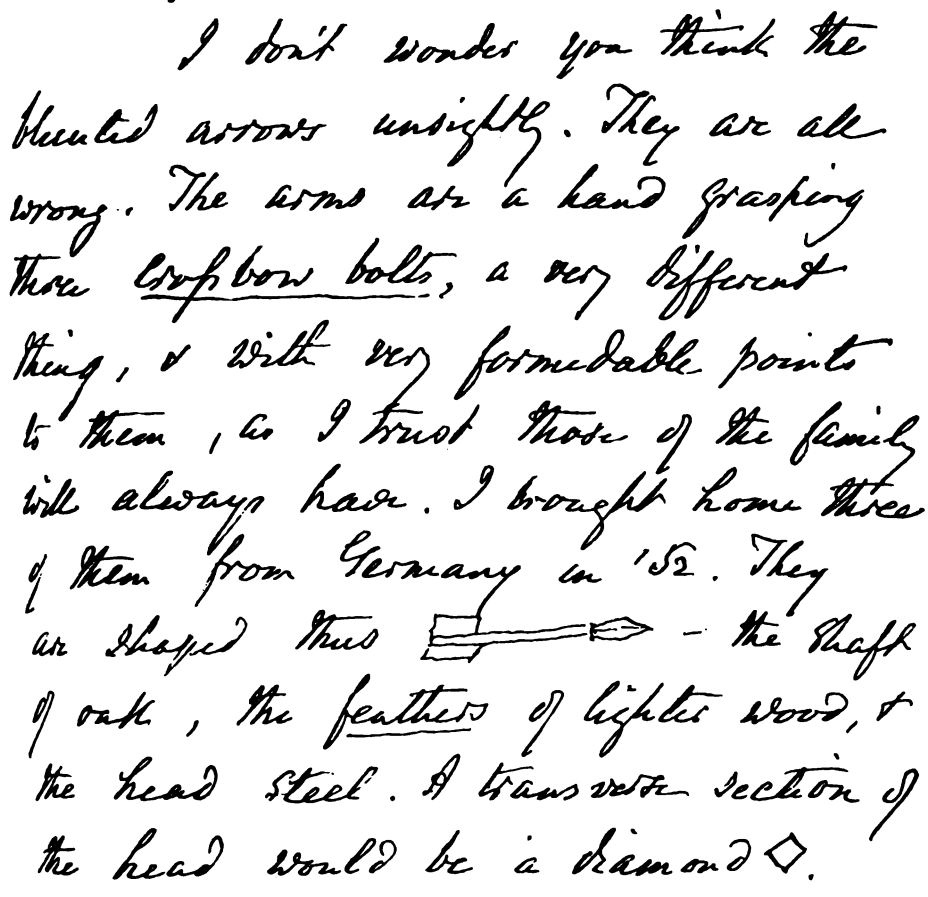 I don't wonder you think the
blunted arrows unsightly. They are all
wrong. The arms are a hand grasping
three crossbow bolts, a very different
thing, & with very formidable points
to them, as I trust those of the family
will always have. I brought home three
of them from Germany in '52. They
are shaped thus — the shaft
of oak, the feathers of lighter wood, &
the head steel. A transverse section of
the head would be a diamond ◇.